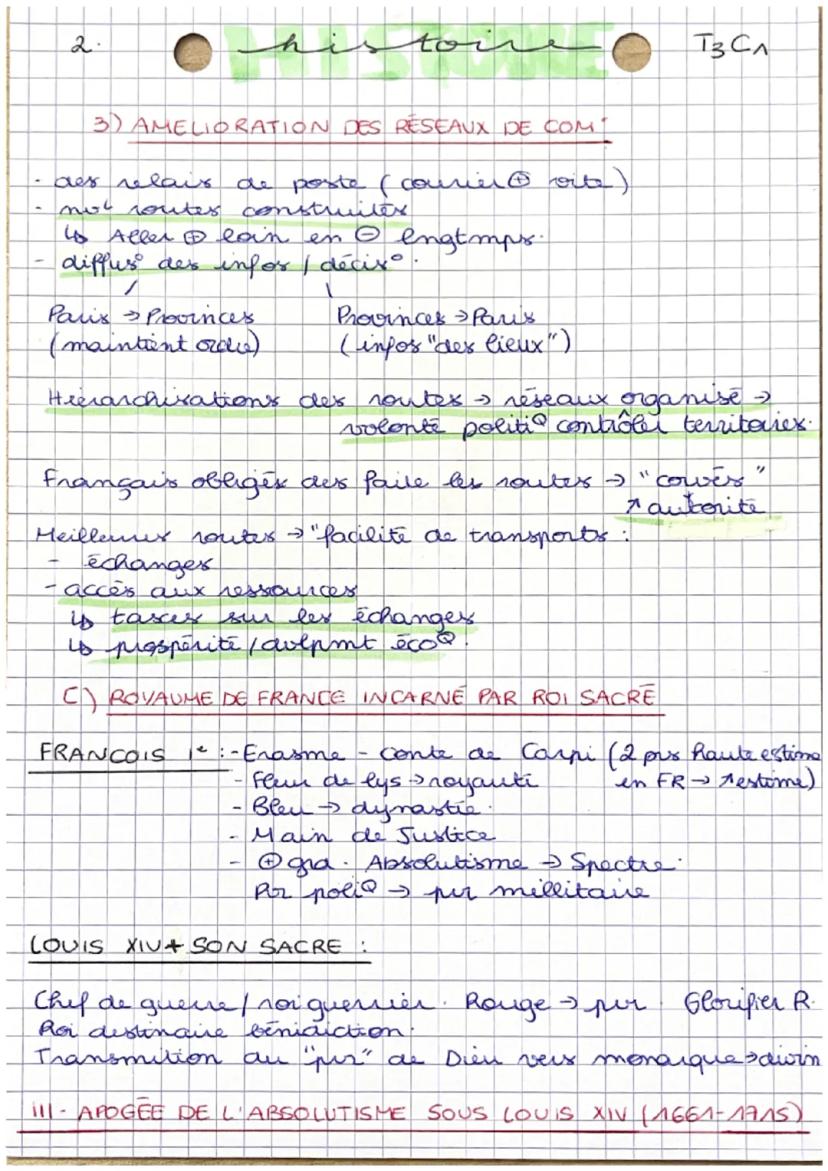 2. histoire T3 C1
HISTOIRE
3) AMELIORATION DES RÉSEAUX DE COM°
- des relais de poste (courier ⊕ vite)
- nvl routes construites
↳ Aller ⊕ loin en ⊖ lngtmps.
- diffus° des infos / décis°.
Paris → Provinces Provinces → Paris
(maintient ordre) (infos "des lieux")
Hiérarchisations des routes → réseaux organisé →
volonté politiQ contrôler territoires.
Français obligés des faire les routes → "corvés"
↗ autorité
Meilleures routes → "facilité de transports :
- échanges
- accès aux ressources
↳ taxes sur les échanges
↳ prospérité / dvlpmt écoQ.
C) ROYAUME DE FRANCE INCARNÉ PAR ROI SACRÉ
FRANCOIS 1e : - Erasme - conte de Carpi (2 prs haute estime
- Fleur de lys → royauté en FR → ↗ estime)
- Bleu → dynastie.
- Main de Justice
- ⊕ gra. Absolutisme → Spectre.
Pvr poliQ → pvr millitaire
LOUIS XIV + SON SACRE :
Chef de guerre / roi guerrier. Rouge → pvr. Glorifier R.
Roi destinaire bénidiction.
Transmition du "pvr" de Dieu vers monarque → divin
III - APOGÉE DE L'ABSOLUTISME SOUS LOUIS XIV (1661-1715)